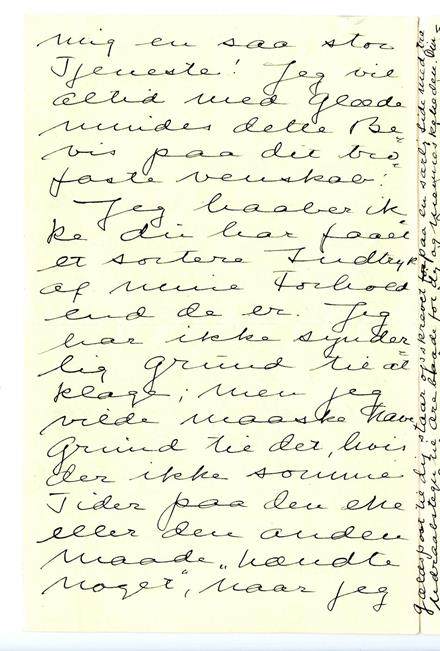 mig en saa stor
Tjeneste! Jeg vil
altid med Glæde
mindes dette Be-
vis paa dit tro-
faste venskab!
Jeg haaber ik-
ke du har faaet
et sortere Indtryk
af mine Forhold
end de er. Jeg
har ikke synder-
lig Grund til at
klage; men jeg
vilde maaske have
Grund til det, hvis
der ikke somme
Tider paa den ene
eller den anden
Maade „hændte
noget", naar jeg
til dig staar opskrevet paa en særlig Side med tre